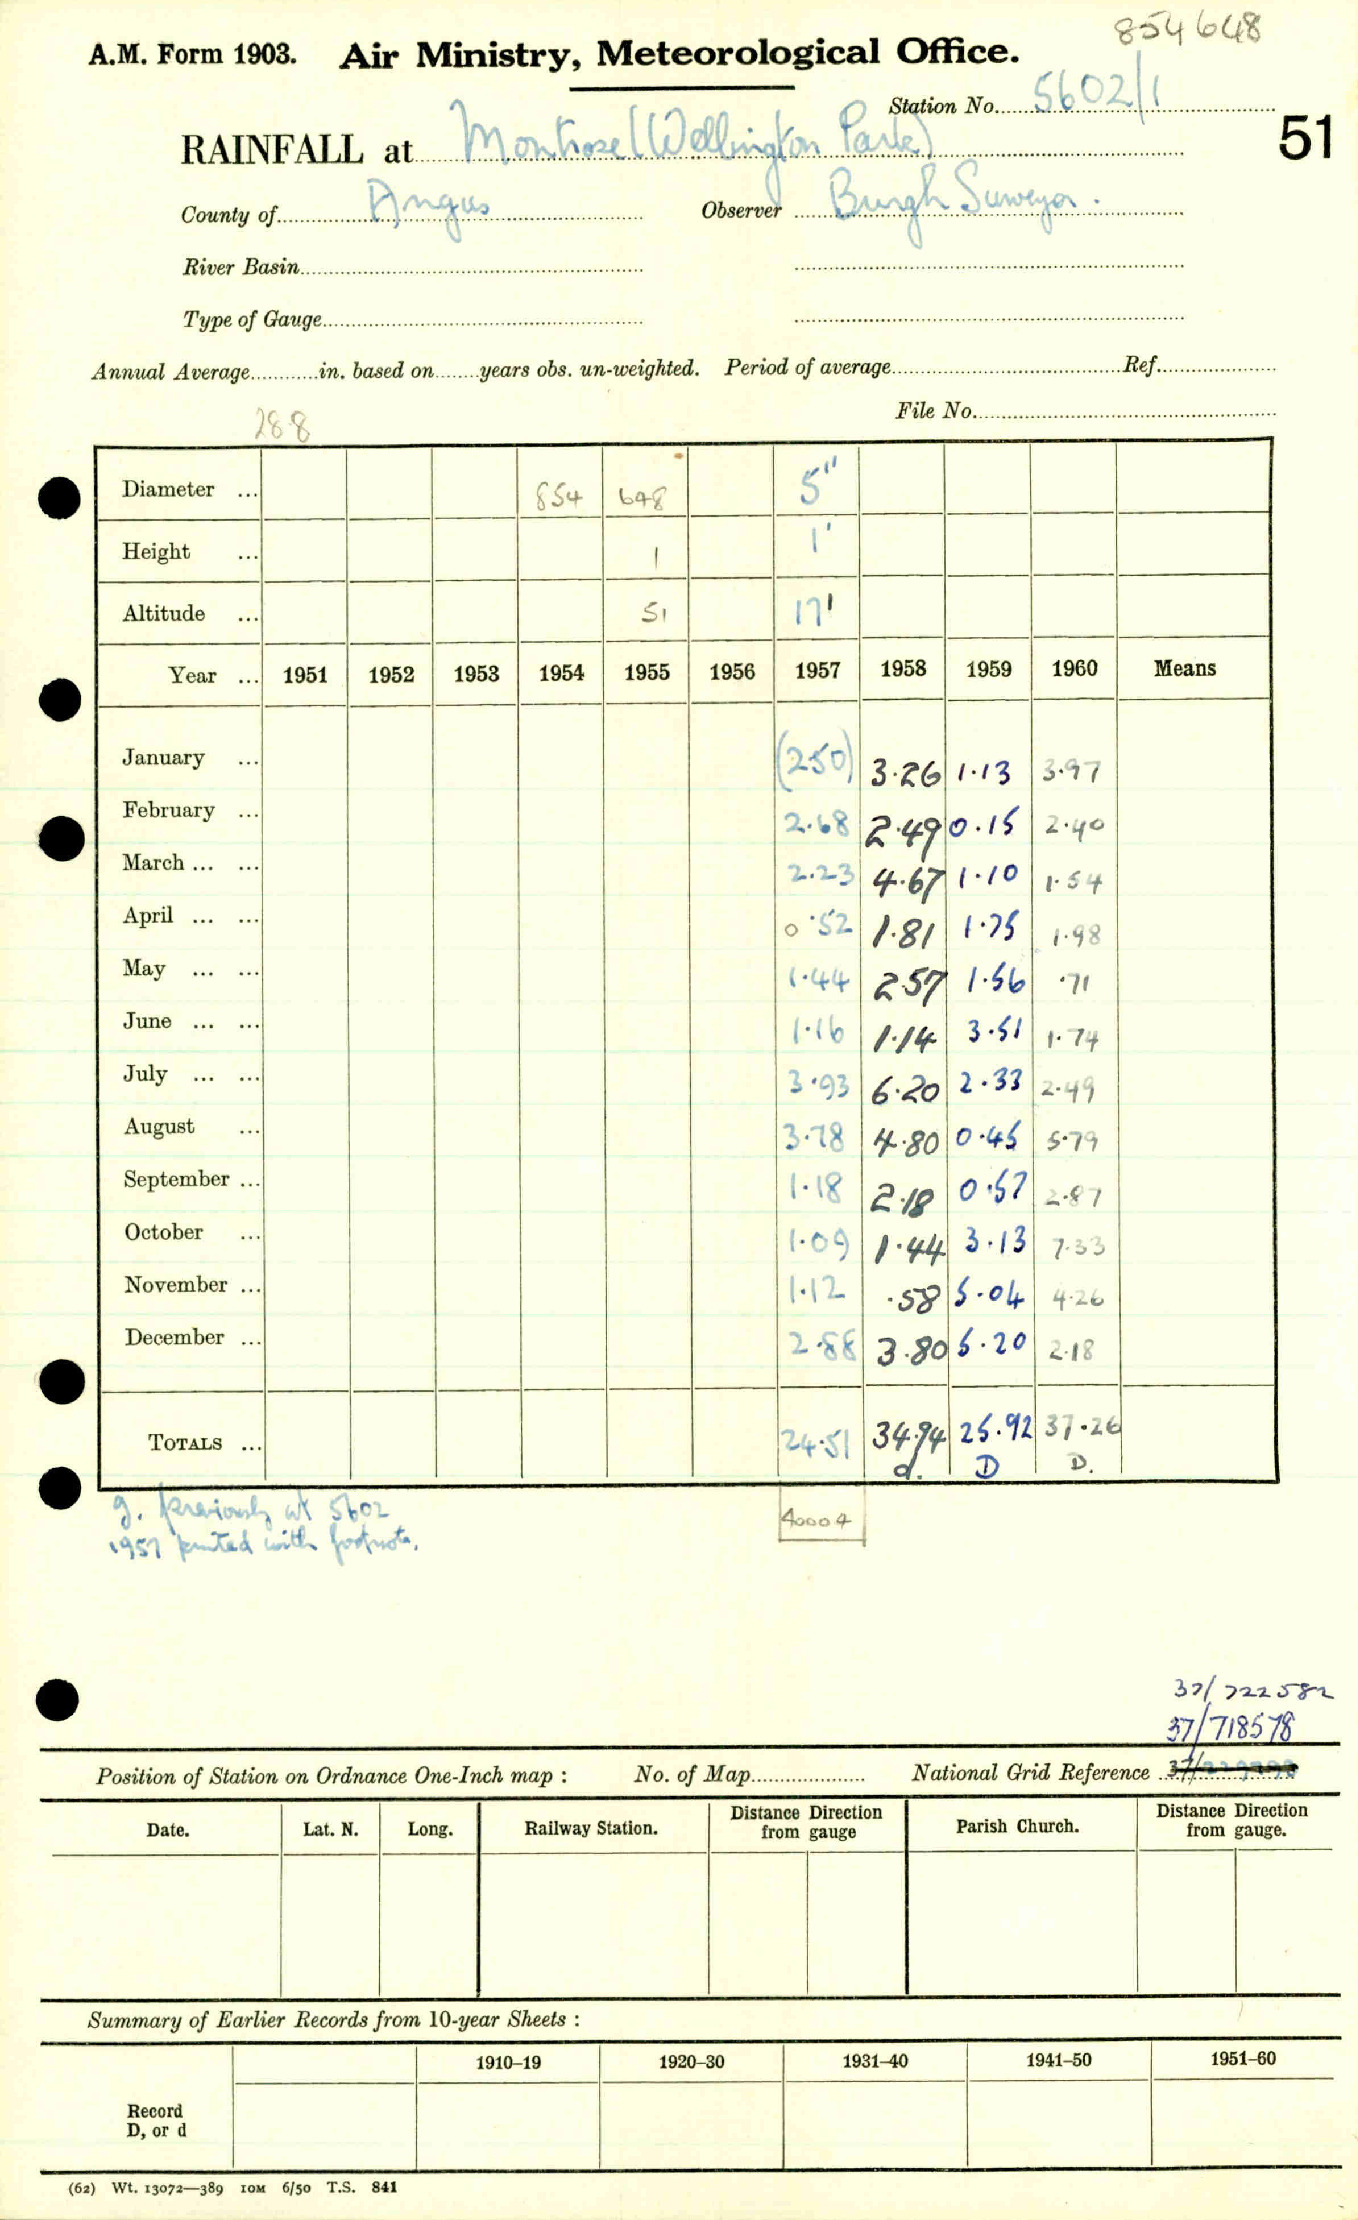 854648
A.M. Form 1903. Air Ministry, Meteorological Office.
Station No. 5602/1
51
RAINFALL at Montrose (Wellington Park)
County of Angus Observer Burgh Surveyor.
River Basin
Type of Gauge
Annual Average in. based on years obs. un-weighted. Period of average Ref.
File No.
288
Diameter ... 854 648 5"
Height ... 1 1'
Altitude ... 51 17'
Year ... 1951 1952 1953 1954 1955 1956 1957 1958 1959 1960 Means
January ... (2.50) 3.26 1.13 3.97
February ... 2.68 2.49 0.15 2.40
March ... ... 2.23 4.67 1.10 1.54
April ... ... 0.52 1.81 1.75 1.98
May ... ... 1.44 2.57 1.56 .71
June ... ... 1.16 1.14 3.51 1.74
July ... ... 3.93 6.20 2.33 2.49
August ... 3.78 4.80 0.45 5.79
September ... 1.18 2.18 0.57 2.87
October ... 1.09 1.44 3.13 7.33
November ... 1.12 .58 5.04 4.26
December ... 2.88 3.80 5.20 2.18
TOTALS ... 24.51 34.94 25.92 37.26
d. D D.
g. previously at 5602
1957 printed with footnote.
40004
37/722582
37/718578
Position of Station on Ordnance One-Inch map : No. of Map National Grid Reference 37/
Date. Lat. N. Long. Railway Station. Distance Direction from gauge Parish Church. Distance Direction from gauge.
Summary of Earlier Records from 10-year Sheets :
1910–19 1920–30 1931–40 1941–50 1951–60
Record
D, or d
(62) Wt. 13072—389 10M 6/50 T.S. 841